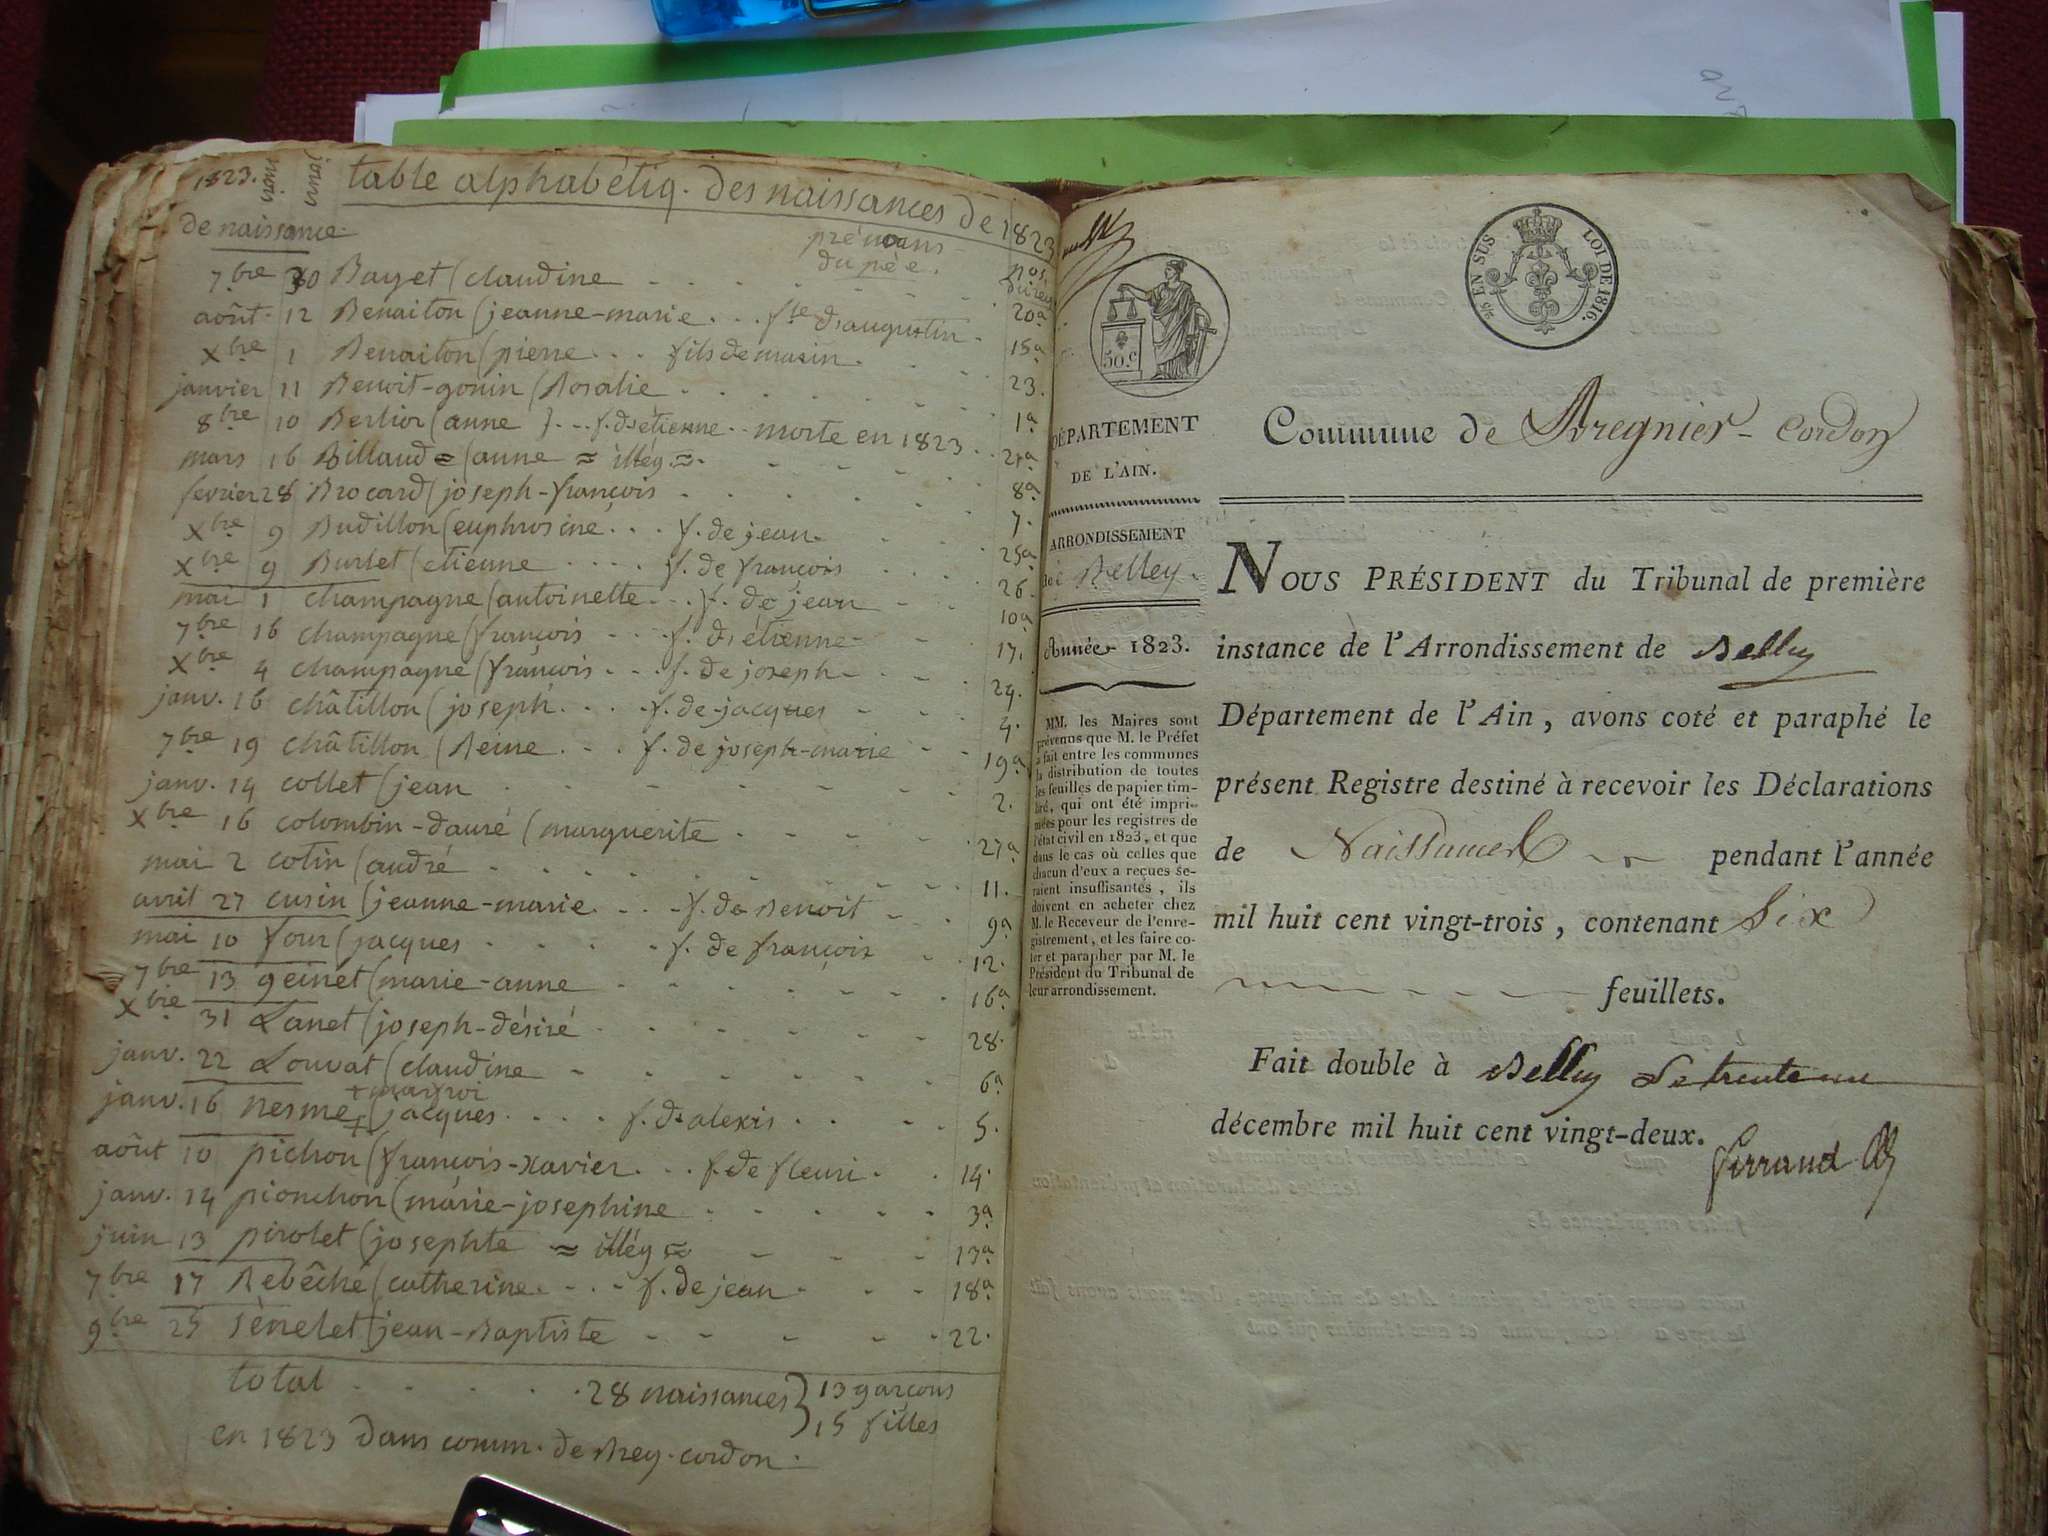 1823. mois jours table alphabétiq. des naissances de 1823
de naissance. prénoms
du père. nos.
7bre 30 Bayet (claudine 20a
août 12 Benaiton (jeanne-marie ... flle d'augustin 15a
Xbre 1 Benaiton (pierre ... fils de marin 23.
janvier 11 Benoit-gonin (Rosalie 1a
8bre 10 Berlior (anne } ... f. d'étienne .. morte en 1823 .. 21a
mars 16 Billaud = (anne = illég = 8a
fevrier 28 Brocard (joseph-françois 7.
Xbre 9 Budillon (euphrosine ... f. de jean 25a
Xbre 9 Burlet (etienne .... f. de françois 26.
mai 1 champagne (antoinette ... f. de jean 10a
7bre 16 champagne (françois ... f. d'étienne 17.
Xbre 4 champagne (françois ... f. de joseph 24.
janv. 16 châtillon (joseph .... f. de jacques 4.
7bre 19 châtillon (Reine ... f. de joseph-marie 19a
janv. 14 collet (jean 2.
Xbre 16 colombin-dauré (marguerite 27a
mai 2 cotin (andré 11.
avril 27 cusin (jeanne-marie ... f. de Benoit 9a
mai 10 four (jacques .... f. de françois 12.
7bre 13 geinet (marie-anne 16a
Xbre 31 Lanet (joseph-désiré 28.
janv. 22 Louvat (claudine 6a
janv. 16 nesme (jacques .... f. d'alexis 5.
août 10 pichon (françois-xavier ... f. de fleuri 14.
janv. 14 pionchon (marie-josephine 3a
juin 13 pirolet (josephte = illég = 13a
7bre 17 Rebêche (catherine ... f. de jean 18a
9bre 25 senelet (jean-Baptiste 22.
total 28 naissances } 13 garçons
15 filles
en 1823 dans comm. de Breg. cordon.
50.c
DÉPARTEMENT
DE L'AIN.
ARRONDISSEMENT
de Belley.
Année 1823.
MM. les Maires sont
prévenus que M. le Préfet
a fait entre les communes
la distribution de toutes
les feuilles de papier tim-
bré, qui ont été impri-
mées pour les registres de
l'état civil en 1823, et que
dans le cas où celles que
chacun d'eux a reçues se-
raient insuffisantes, ils
doivent en acheter chez
M. le Receveur de l'enre-
gistrement, et les faire co-
ter et parapher par M. le
Président du Tribunal de
leur arrondissement.
EN SUS LOI DE 1816.
Commune de Bregnier-Cordon
NOUS PRÉSIDENT du Tribunal de première
instance de l'Arrondissement de Belley
Département de l'Ain, avons coté et paraphé le
présent Registre destiné à recevoir les Déclarations
de Naissances pendant l'année
mil huit cent vingt-trois, contenant Six
feuillets.
Fait double à Belley Le trente un
décembre mil huit cent vingt-deux.
Ferrand